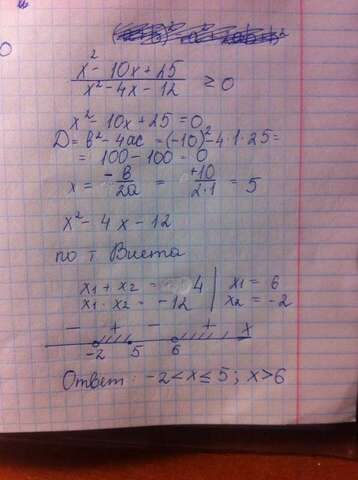 x² - 10x + 25
x² - 4x - 12
≥ 0
x² - 10x + 25 = 0
D = b² - 4ac = (-10)² - 4·1·25 =
= 100 - 100 = 0
x = -b/2a = +10/2·1 = 5
x² - 4x - 12
по т Виета
x₁ + x₂ = 4 | x₁ = 6
x₁ · x₂ = -12 | x₂ = -2
- + - + x
-2 5 6
Ответ: -2 < x ≤ 5; x > 6